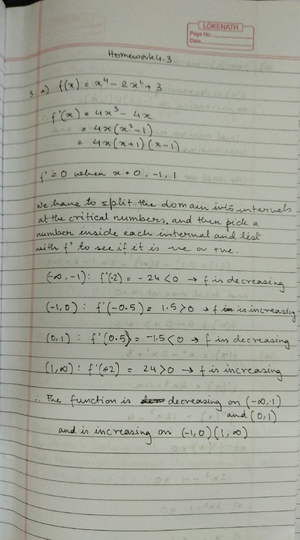 LOKENATH
Page No.
Date
Homework 4.3
3. a) f(x) = x⁴ - 2x² + 3
∴ f'(x) = 4x³ - 4x
= 4x(x²-1)
= 4x(x+1)(x-1)
f' = 0 when x = 0, -1, 1
We have to split the domain into intervals
at the critical numbers, and then pick a
number inside each interval and test
with f' to see if it is -ve or +ve.
(-∞, -1): f'(-2) = -24 < 0 → f is decreasing
(-1, 0): f'(-0.5) = 1.5 > 0 → f is increasing
(0, 1): f'(0.5) = -1.5 < 0 → f is decreasing
(1, ∞): f'(2) = 24 > 0 → f is increasing
∴ The function is decreasing on (-∞, -1)
and (0, 1)
and is increasing on (-1, 0) (1, ∞)